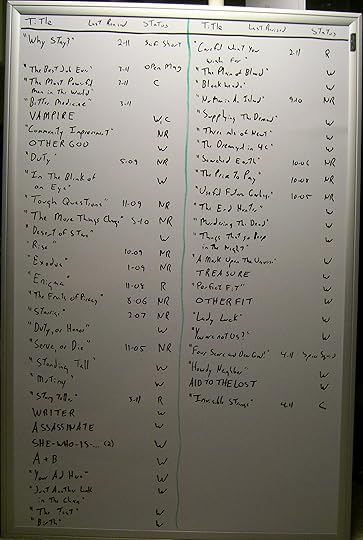 Title Last Revised Status
"Why Stay?" 2-11 Sub. Short
"The Best Job Ever" 3-11 Open Mag
"The Most Powerful 2-11 C
Man in the World"
"Bitter Medicine" 3-11
VAMPIRE W, C
"Community Improvement" NR
OTHER GOD W
"Duty" 5-09 NR
"In The Blink of W
an Eye"
"Tough Questions" 11-09 NR
"The More Things Change" 5-10 NR
"Desert of Stars" W
"Rise" 10-09 NR
"Exodus" 1-09 NR
"Enigma" 11-08 R
"The Fruits of Piracy" 8-06 NR
"Stories" 2-07 NR
"Duty, or Honor" W
"Serve, or Die" 11-05 NR
"Standing Tall" W
"Mutiny" W
"Story Teller" 3-11 R
WRITER W
ASSASSINATE W
SHE-WHO-IS-... (2) W
A + B W
"Your Ad Here" W
"Just Another Link W
in the Chain"
"The Test" W
"Birth" W
Title Last Revised Status
"Careful What You 2-11 R
Wish For"
"The Plan of Blood" W
W
"No Man is A Island" 9-10 NR
"Supplying The Dead" W
W
"The Dreamyd in 4C" W
"Scorched Earth" 10-06 NR
"The Price To Pay" 10-08 NR
10-05 NR
W
"Murdering The Dead" W
"Things that go Beep W
in the Night"
"A Mark Upon The W
TREASURE W
"Perfect Fit" W
OTHERFIT W
"Lady Luck" W
"You are not Us?" W
"Four Score and 4-11
"Howdy Neighbor" W
AID TO THE LOST W
"Invisible Strings" 4-11 C